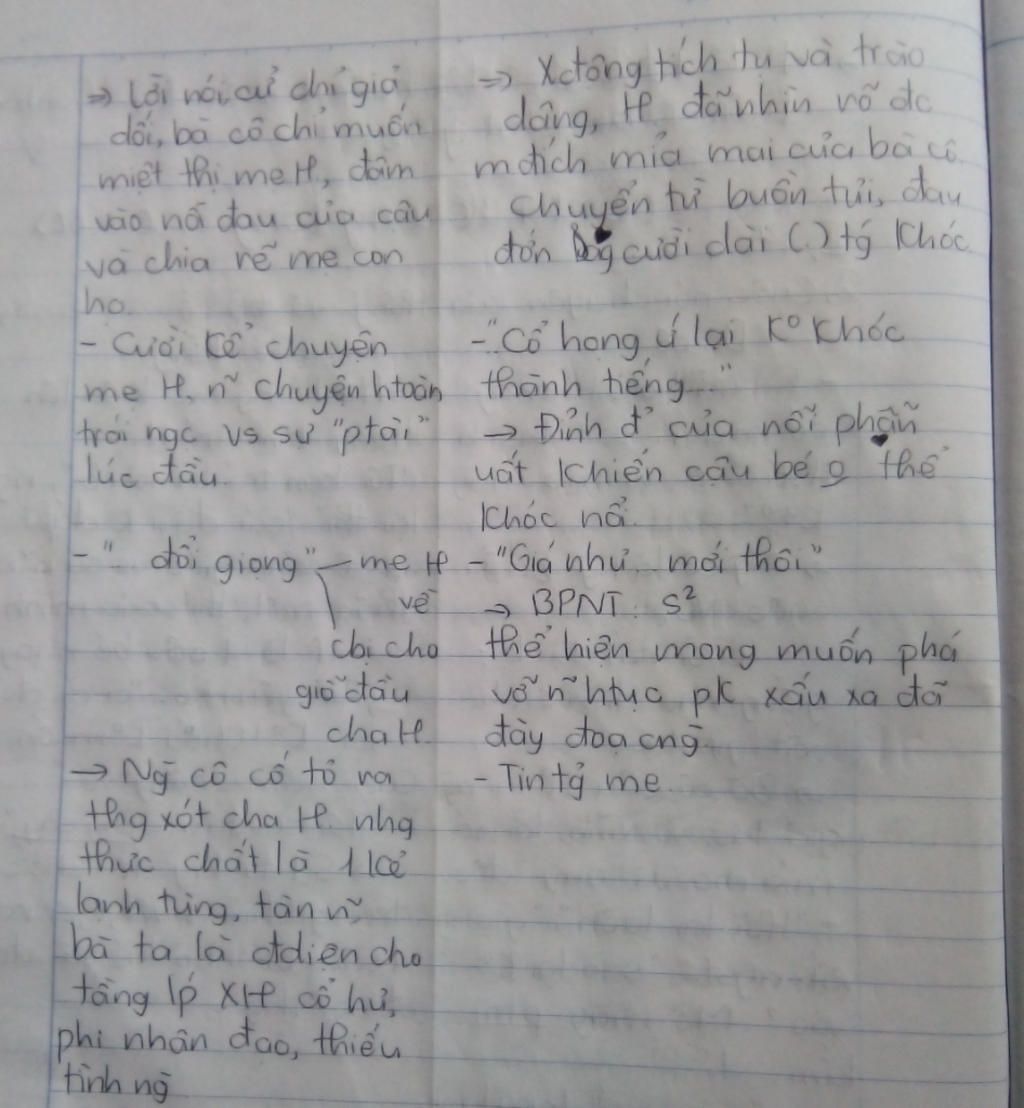 ⇒ Lời nói cử chỉ giả
dối, bà cô chỉ muốn
miệt thị mẹ H, đâm
vào nỗi đau của cậu
và chia rẽ mẹ con
họ.
- Cười kể chuyện
mẹ H, n~ chuyện htoàn
trái ngc vs sự "ptài"
lúc đầu.
- " đổi giọng" — mẹ H
về
cbị cho
giỗ đầu
cha H.
→ Ng̃ cô cố tỏ ra
thg xót cha H nhg
thực chất là 1 kẻ
lạnh lùng, tàn n~,
bà ta là đdiện cho
tầng lớp XH cổ hủ,
phi nhân đạo, thiếu
tình ng̃
⇒ Xctông tích tụ và trào
dâng, H đã nhìn rõ đc
mđích mỉa mai của bà cô
chuyển từ buồn tủi, đau
đớn cười dài (.) tg khóc
- "Cổ họng ứ lại Kº khóc
thành tiếng..."
→ Đỉnh đ' của nỗi phẫn
uất khiến cậu bé o thể
khóc nổi.
- "Giá như ... mới thôi"
→ BPNT: S²
thể hiện mong muốn phá
vỡ n~ htục pk xấu xa đã
đày đọa cng̃
- Tin tg̉ mẹ.